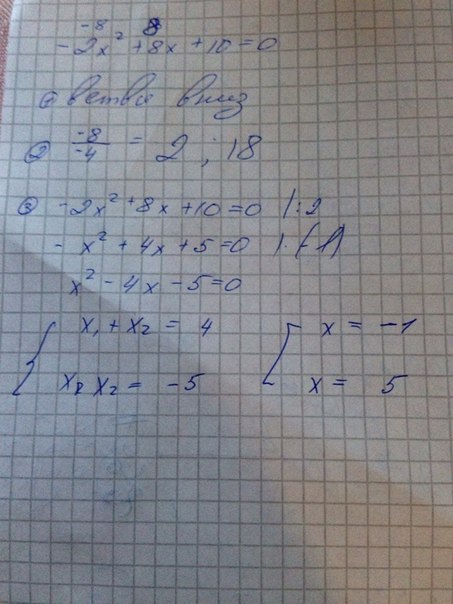 -8 8
-2x² + 8x + 10 = 0
① ветви вниз
② -8/-4 = 2 ; 18
③ -2x² + 8x + 10 = 0 |:2
- x² + 4x + 5 = 0 |·(-1)
x² - 4x - 5 = 0
{ x₁ + x₂ = 4 [ x = -1
x₁ x₂ = -5 x = 5